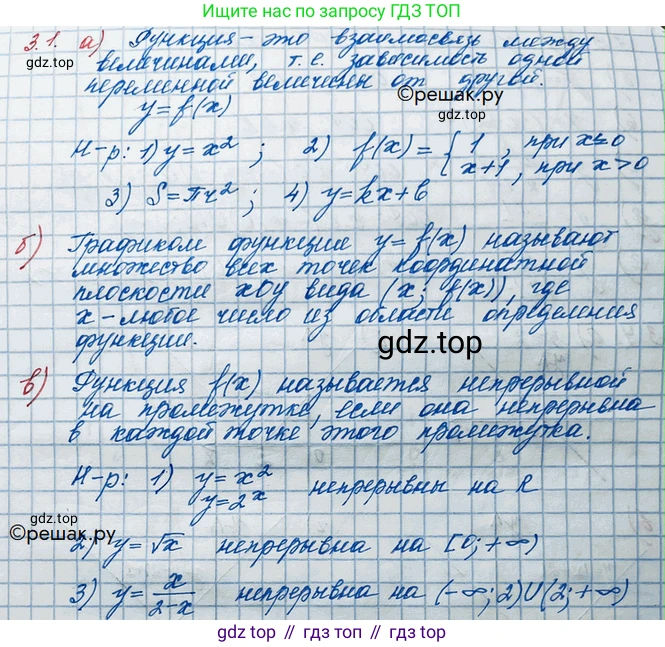 Ищите нас по запросу ГДЗ ТОП
3.1. а) Функция - это взаимосвязь между
величинами, т.е. зависимость одной
переменной величены от другой.
y = f(x)
©решак.ру
Н-р: 1) y = x² ; 2) f(x) = { 1 , при x≤0
x+1 , при x>0
3) S = πr² ; 4) y = kx + b
б) Графиком функции y = f(x) называют
множество всех точек координатной
плоскости xOy вида (x; f(x)), где
x - любое число из области определения
функции.
gdz.top
в) Функция f(x) называется непрерывной
на промежутке, если она непрерывна
в каждой точке этого промежутка.
Н-р: 1) y = x²
y = 2ˣ непрерывны на R
gdz.top
©решак.ру
2) y = √x непрерывна на [0; +∞)
3) y = x/(2-x) непрерывна на (-∞; 2)U(2; +∞)
gdz top // гдз топ // gdz top